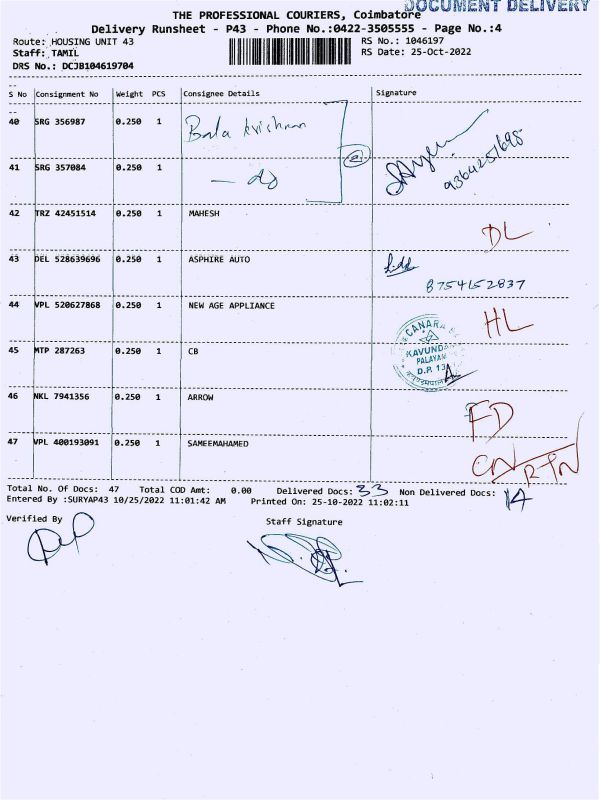 DOCUMENT DELIVERY
THE PROFESSIONAL COURIERS, Coimbatore
Delivery Runsheet - P43 - Phone No.:0422-3505555 - Page No.:4
Route: HOUSING UNIT 43
RS No.: 1046197
Staff: TAMIL
RS Date: 25-Oct-2022
DRS No.: DCJB104619704
S No Consignment No Weight PCS Consignee Details Signature
40 SRG 356987 0.250 1 Bala krishnan
41 SRG 357084 0.250 1 — do
9364251698
42 TRZ 42451514 0.250 1 MAHESH DL
43 DEL 528639696 0.250 1 ASPHIRE AUTO
8754152837
44 VPL 520627868 0.250 1 NEW AGE APPLIANCE HL
45 MTP 287263 0.250 1 CB
CANARA
KAVUNDA
PALAYAM
D.P. 13
46 NKL 7941356 0.250 1 ARROW FD
47 VPL 400193091 0.250 1 SAMEEMAHAMED CN RTN
Total No. Of Docs: 47 Total COD Amt: 0.00 Delivered Docs: 33 Non Delivered Docs: 14
Entered By :SURYAP43 10/25/2022 11:01:42 AM Printed On: 25-10-2022 11:02:11
Verified By Staff Signature